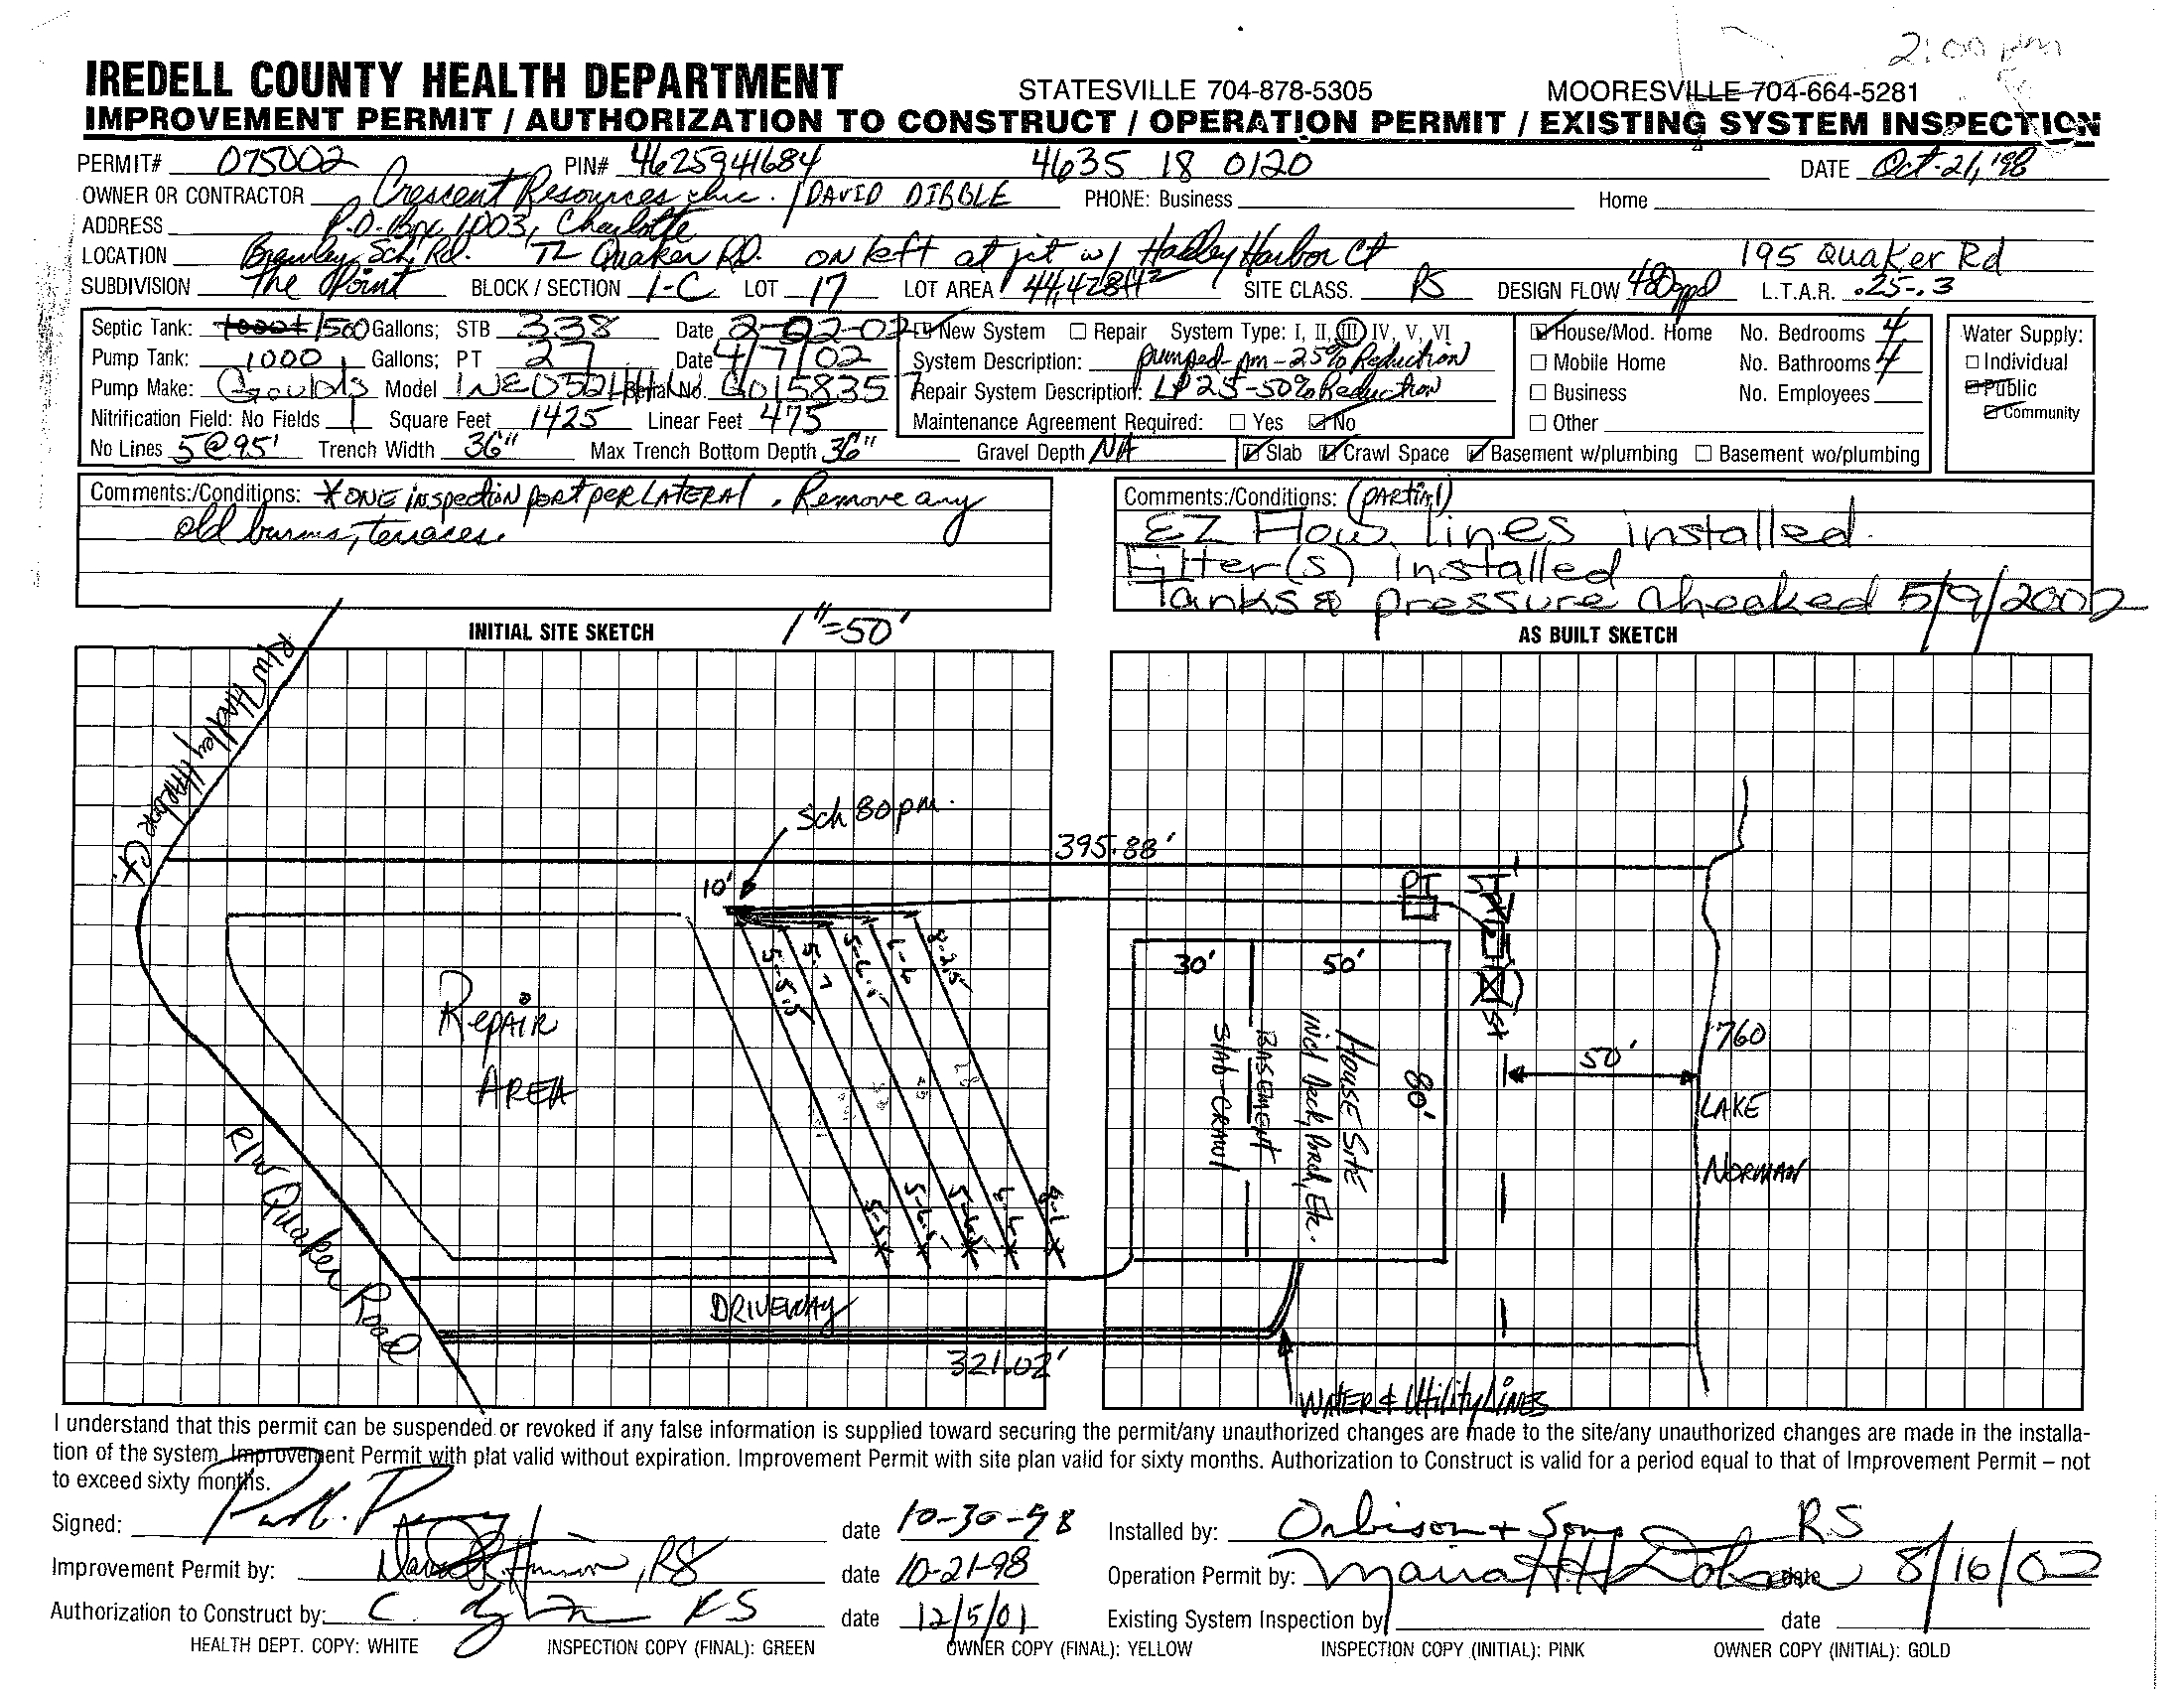 2:00 pm
IREDELL COUNTY HEALTH DEPARTMENT STATESVILLE 704-878-5305 MOORESVILLE 704-664-5281
IMPROVEMENT PERMIT / AUTHORIZATION TO CONSTRUCT / OPERATION PERMIT / EXISTING SYSTEM INSPECTION
PERMIT# 075002 PIN# 4625941684 4635 18 0120 DATE Oct. 21, '98
OWNER OR CONTRACTOR Crescent Resources Inc. / DAVID DIBBLE PHONE: Business Home
ADDRESS P.O. Box 1003, Charlotte
LOCATION Brawley Sch. Rd. TL Quaker RD. on left at jct w/ Hadley Harbor Ct 195 Quaker Rd
SUBDIVISION The Point BLOCK / SECTION 1-C LOT 17 LOT AREA 44,428ft² SITE CLASS. PS DESIGN FLOW 480gpd L.T.A.R. .25-.3
Septic Tank: 1000+ 1500 Gallons; STB 338 Date 2-02-02 New System Repair System Type: I, II, III, IV, V, VI House/Mod. Home No. Bedrooms 4 Water Supply:
Pump Tank: 1000 Gallons; PT 27 Date 4/7/02 System Description: pumped-pm-25% Reduction Mobile Home No. Bathrooms 4 Individual
Pump Make: Goulds Model Serial No. Repair System Description: LP 25-50% Reduction Business No. Employees Public
Nitrification Field: No Fields 1 Square Feet 1425 Linear Feet 475 Maintenance Agreement Required: Yes No Other Community
No Lines 5@95' Trench Width 36" Max Trench Bottom Depth 36" Gravel Depth NA Slab Crawl Space Basement w/plumbing Basement wo/plumbing
Comments:/Conditions: *ONE inspection port per LATERAL. Remove any
old burms, terraces.
Comments:/Conditions: (PARTIAl)
EZ Flow lines installed.
Filter(s) installed
Tanks & pressure checked 5/9/2002
INITIAL SITE SKETCH 1"=50' AS BUILT SKETCH
R/W HAdley HARbor Ct.
Sch 80 pm.
395.88'
10'
PT
5-5.5
5-7
6-6
8-2.5
30' 50'
REPAIR
AREA
SlAb-CRAwl
BASEMENT
House Site
incl Deck, Porch, Etc.
80'
ST
50'
760
LAKE
NORMAN
5-5
6-6
R/W Quaker Road
DRIVEWAY
321.02'
WATER & Utility LINES
I understand that this permit can be suspended or revoked if any false information is supplied toward securing the permit/any unauthorized changes are made to the site/any unauthorized changes are made in the installa-
tion of the system. Improvement Permit with plat valid without expiration. Improvement Permit with site plan valid for sixty months. Authorization to Construct is valid for a period equal to that of Improvement Permit – not
to exceed sixty months.
Signed: date 10-30-98 Installed by: Orbison + Sons RS
Improvement Permit by: RS date 10-21-98 Operation Permit by: Maria date 8/16/02
Authorization to Construct by: C. RS date 12/5/01 Existing System Inspection by date
HEALTH DEPT. COPY: WHITE INSPECTION COPY (FINAL): GREEN OWNER COPY (FINAL): YELLOW INSPECTION COPY (INITIAL): PINK OWNER COPY (INITIAL): GOLD